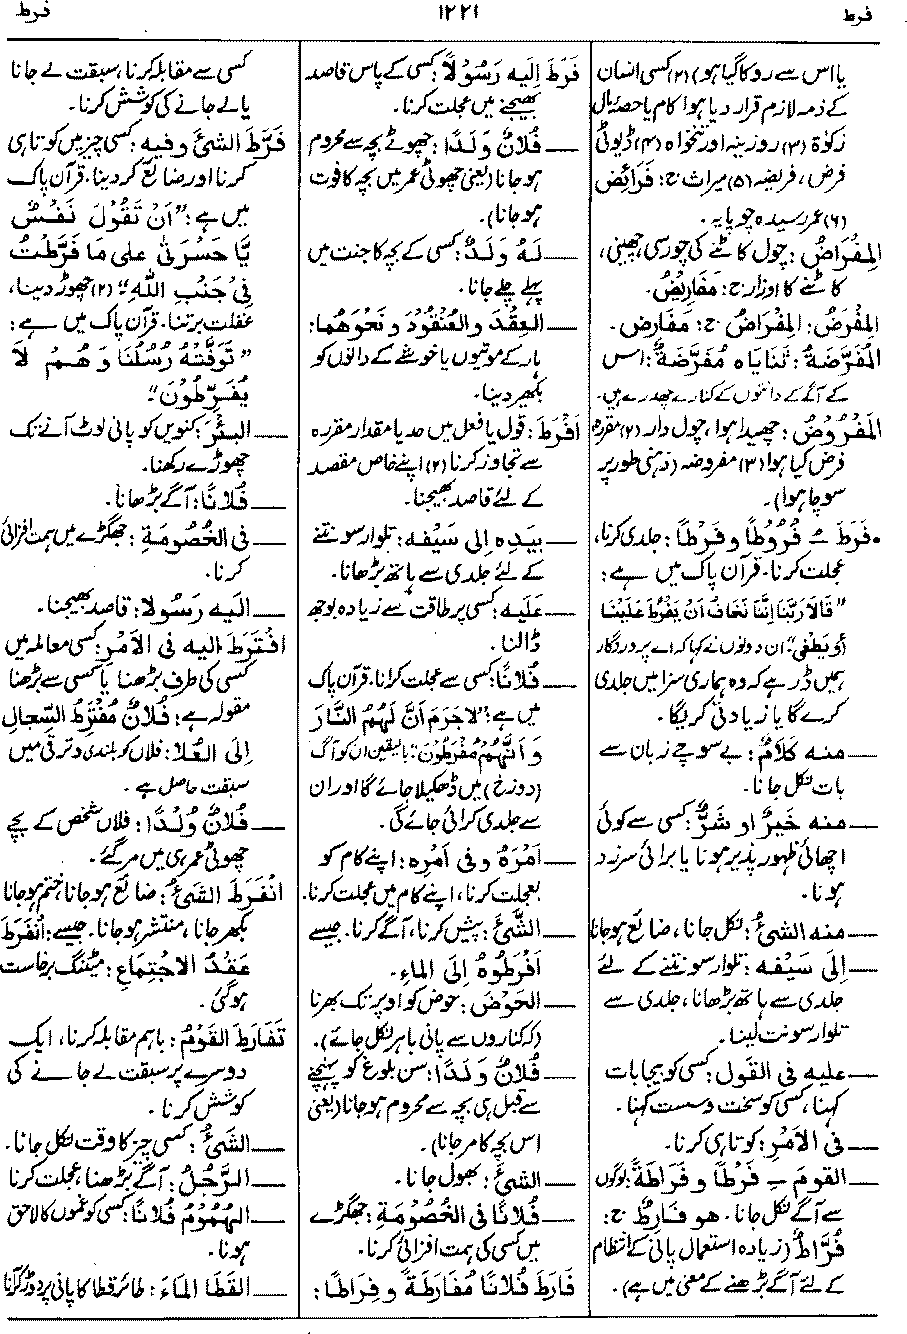 فرط ۱۲۲۱ فرط
یا اس سے روکا گیا ہو) (۲) کسی انسان
کے ذمہ لازم قرار دیا ہوا کام یا حصۂ مال
زکوٰۃ (۳) روزینہ اور تنخواہ (۴) ڈیوٹی
فرض، فریضہ (۵) میراث ج: فَرَائِض
(۶) عمر رسیدہ چوپایہ۔
المِفْرَاضُ: چول کاٹنے کی چورسی، چھینی،
کاٹنے کا اوزار ج: مَفَارِیْضُ۔
المِفْرَضُ: المِفْرَاضُ ج: مَفَارِض۔
المُفَرَّضَةُ: ثَنَایَاہ مُفَرَّضَةٌ: اس
کے آگے کے دانتوں کے کنارے چھدرے ہیں۔
المَفْرُوْضُ: چھیدا ہوا، چول دار (۲) مقررہ
فرض کیا ہوا (۳) مفروضہ (ذہنی طور پر
سوچا ہوا)۔
• فَرَطَ ـُ فُرُوْطًا و فَرْطًا: جلدی کرنا،
عجلت کرنا۔ قرآن پاک میں ہے:
"قَالَا رَبَّنَا اِنَّنَا نَخَافُ اَنْ یَّفْرُطَ عَلَیْنَا
اَوْ یَطْغٰی" ان دونوں نے کہا کہ اے پروردگار
ہمیں ڈر ہے کہ وہ ہماری سزا میں جلدی
کرے گا یا زیادتی کریگا۔
— منه كَلَامٌ: بے سوچے زبان سے
بات نکل جانا۔
— منه خَيْرٌ او شَرٌّ: کسی سے کوئی
اچھائی ظہور پذیر ہونا یا برائی سرزد
ہونا۔
— منه الشيءُ: نکل جانا، ضائع ہو جانا
— اِلَى سَيْفِه: تلوار سونتنے کے لئے
جلدی سے ہاتھ بڑھانا، جلدی سے
تلوار سونت لینا۔
— عليه فى القَولِ: کسی کو بیجا بات
کہنا، کسی کو سخت و سست کہنا۔
— فى الاَمْرِ: کوتاہی کرنا۔
— القَومَ ـِ فَرْطًا و فَرَاطَةً: لوگوں
سے آگے نکل جانا۔ هو فَارِطٌ ج:
فُرَّاطٌ (زیادہ استعمال پانی کے انتظام
کے لئے آگے بڑھنے کے معنی میں ہے)۔
فَرَّطَ اِلَيه رَسُوْلًا: کسی کے پاس قاصد
بھیجنے میں عجلت کرنا۔
— فُلَانٌ وَلَدًا: چھوٹے بچہ سے محروم
ہو جانا (یعنی چھوٹی عمر میں بچہ کا فوت
ہو جانا)۔
— لَهُ وَلَدٌ: کسی کے بچہ کا جنت میں
پہلے چلے جانا۔
— العِقْدَ و العُنْقُودَ و نَحوَهُمَا:
ہار کے موتیوں یا خوشے کے دانوں کو
بکھیر دینا۔
اَفْرَطَ: قول یا فعل میں حد یا مقدار مقررہ
سے تجاوز کرنا (۲) اپنے خاص مقصد
کے لئے قاصد بھیجنا۔
— بِيَدِه اِلى سَيْفِه: تلوار سونتنے
کے لئے جلدی سے ہاتھ بڑھانا۔
— عَلَيه: کسی پر طاقت سے زیادہ بوجھ
ڈالنا۔
— فُلَانًا: کسی سے عجلت کرانا۔ قرآن پاک
میں ہے: "لَاجَرَمَ اَنَّ لَهُمُ النَّارَ
وَ اَنَّهُمْ مُّفْرَطُوْنَ": بالیقین ان کو آگ
(دوزخ) میں ڈھکیلا جائے گا اور ان
سے جلدی کرائی جائے گی۔
— اَمْرَهُ و فى اَمْرِه: اپنے کام کو
بعجلت کرنا، اپنے کام میں عجلت کرنا۔
— الشَّيْءَ: پیش کرنا، آگے کرنا۔ جیسے
اَفْرَطُوْهُ اِلَى المَاءِ۔
— الحَوْضَ: حوض کو اوپر تک بھرنا
(کہ کناروں سے پانی باہر نکل جائے)۔
— فُلَانٌ وَلَدًا: سن بلوغ کو پہنچنے
سے قبل ہی بچہ سے محروم ہو جانا (یعنی
اس بچہ کا مر جانا)۔
— الشيءَ: بھول جانا۔
— فُلَانًا فى الخُصُوْمَةِ: جھگڑے
میں کسی کی ہمت افزائی کرنا۔
فَارَطَ فُلَانًا مُفَارَطَةً و فِرَاطًا:
کسی سے مقابلہ کرنا، سبقت لے جانا
یا لے جانے کی کوشش کرنا۔
فَرَّطَ الشيءَ و فِيه: کسی چیز میں کوتاہی
کرنا اور ضائع کر دینا۔ قرآن پاک
میں ہے: "اَنْ تَقُوْلَ نَفْسٌ
یّٰا حَسْرَتٰى عَلٰى مَا فَرَّطْتُ
فِیْ جَنْبِ اللهِ" (۲) چھوڑ دینا،
غفلت برتنا۔ قرآن پاک میں ہے:
"تَوَفَّتْهُ رُسُلُنَا وَ هُمْ لَا
يُفَرِّطُوْنَ"
— البِئْرَ: کنویں کو پانی لوٹ آنے تک
چھوڑے رکھنا۔
— فُلَانًا: آگے بڑھانا۔
— فى الخُصُومَةِ: جھگڑے میں ہمت افزائی
کرنا۔
— اِلَيه رَسُولًا: قاصد بھیجنا۔
افْتَرَطَ اليه فى الاَمْرِ: کسی معاملہ میں
کسی کی طرف بڑھنا یا کسی سے بڑھنا
مقولہ ہے: فُلَانٌ مُفْتَرِطُ السِّجَالِ
اِلَى العُلَا: فلاں کو بلندی و ترقی میں
سبقت حاصل ہے۔
— فُلَانٌ وَلَدًا: فلاں شخص کے بچے
چھوٹی عمر ہی میں مر گئے۔
انْفَرَطَ الشيءُ: ضائع ہو جانا، ختم ہو جانا
بکھر جانا، منتشر ہو جانا۔ جیسے: اِنْفَرَطَ
عَقْدُ الاجْتِمَاعِ: میٹنگ برخاست
ہو گئی۔
تَفَارَطَ القَوْمُ: باہم مقابلہ کرنا، ایک
دوسرے پر سبقت لے جانے کی
کوشش کرنا۔
— الشيءُ: کسی چیز کا وقت نکل جانا۔
— الرَّجُلُ: آگے بڑھنا، عجلت کرنا
— الهُمُوْمُ فُلَانًا: کسی کو غموں کا لاحق
ہونا۔
— القَطَا المَاءَ: طائر قطا کا پانی پر دوڑ کر آنا